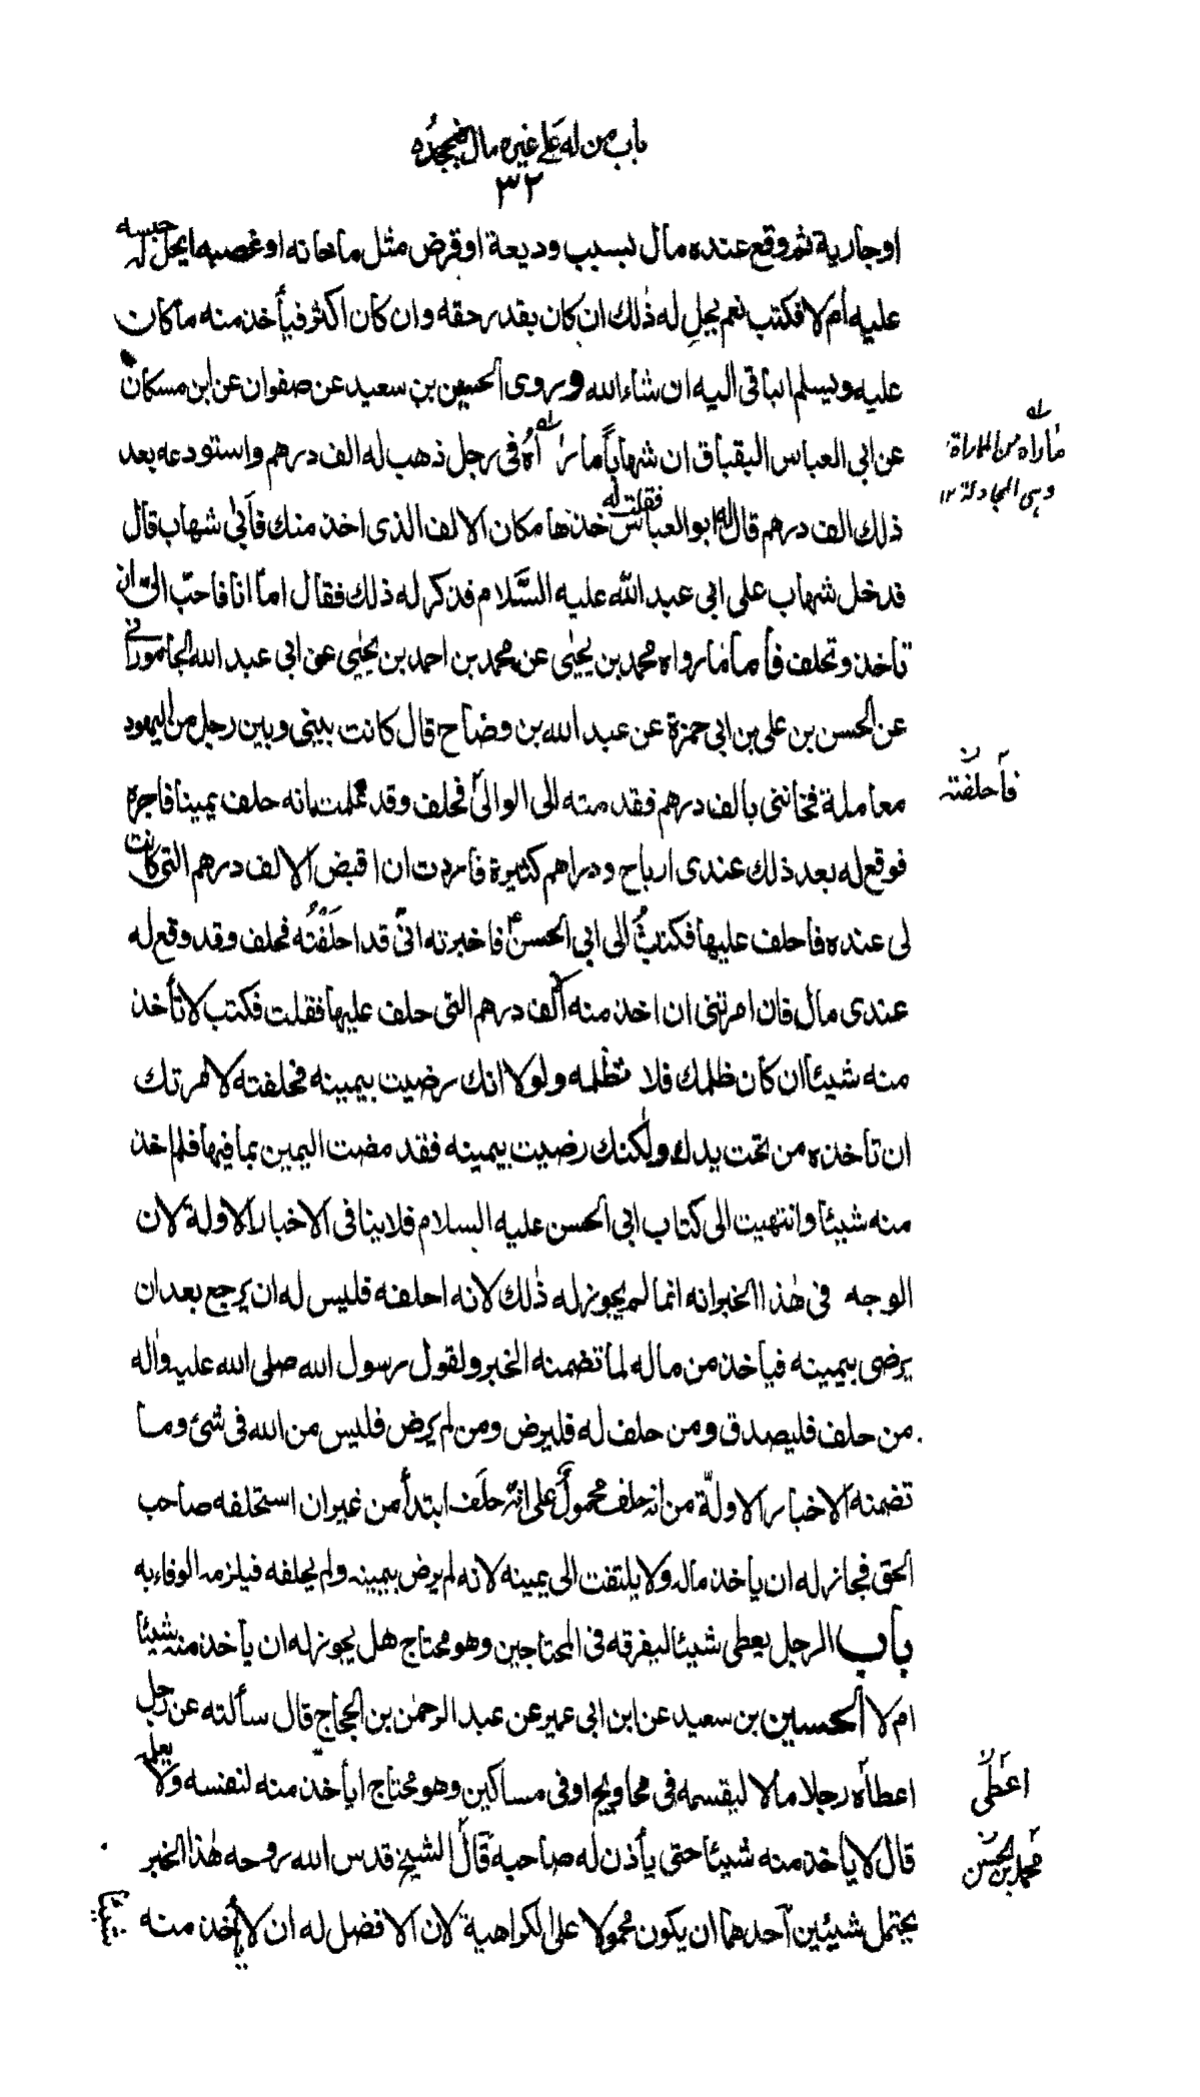 باب من له على غيره مال فيجحده
٣٢
او جارية ثم وقع عنده مال بسبب وديعة او قرض مثل ما خانه او غصبه ايحل له حبسه
عليه أم لا فكتب نعم يحل له ذٰلك ان كان بقدر حقه وان كان اكثر فيأخذ منه ما كان
عليه ويسلم الباقى اليه ان شاء الله وروى الحسين بن سعيد عن صفوان عن ابن مسكان
عن ابى العباس البقباق ان شهاباً ماراه فى رجل ذهب له الف درهم واستودعه بعد
ماراه من المماراة
وهى المجادلة ١٢
ذلك الف درهم قال ابو العباس فقلت له خذها مكان الالف الذى اخذ منك فأبى شهاب قال
فدخل شهاب على ابى عبد الله عليه السَّلام فذكر له ذلك فقال امّا انا فاحبّ الىّ ان
تأخذ وتحلف فأما ما رواه محمد بن يحيٰى عن محمد بن احمد بن يحيٰى عن ابى عبد الله الجامورانى
عن الحسن بن على بن ابى حمزة عن عبد الله بن وضاح قال كانت بينى وبين رجل من اليهود
معاملة فخاننى بالف درهم فقدمته الى الوالى فحلف وقد علمت بانه حلف يمينا فاجرة
فأحلفته
فوقع له بعد ذلك عندى ارباح ودراهم كثيرة فاردت ان اقبض الالف درهم التى كانت
لى عنده فاحلف عليها فكتبتُ الى ابى الحسنؑ فاخبرته انّى قد احلَفْتُه فحلف وقد وقع له
عندى مال فان امرتنى ان اخذ منه الالف درهم التى حلف عليها فقلت فكتب لا تأخذ
منه شيئا ان كان ظلمك فلا تظلمه ولولا انك رضيت بيمينه فحلفته لامرتك
ان تأخذه من تحت يدك ولٰكنك رضيت بيمينه فقد مضت اليمين بما فيها فلم اخذ
منه شيئا وانتهيت الى كتاب ابى الحسن عليه السلام فلا ينافى الاخبار الاولة لان
الوجه فى هٰذا الخبر انه انما لم يجوز له ذٰلك لانه احلفه فليس له ان يرجع بعد ان
يرضى بيمينه فيأخذ من ماله لما تضمنه الخبر ولقول رسول الله صلى الله عليه واٰله
من حلف فليصدق ومن حلف له فليرض ومن لم يرض فليس من الله فى شئ وما
تضمنه الاخبار الاولّة من انه حلف محمولٌ على انّه حلَف ابتدأ من غير ان استحلفه صاحب
الحق فجاز له ان ياخذ ماله ولا يلتفت الى يمينه لانه لم يرض بيمينه ولم يحلفه فيلزمه الوفاء به
باب الرجل يعطى شيئا ليفرقه فى المحتاجين وهو محتاج هل يجوز له ان يأخذ منه شيئا
ام لا الحسين بن سعيد عن ابن ابى عمير عن عبد الرحمٰن بن الحجاج قال سألته عن رجل
اعطاه رجلا مالا ليقسمه فى محاويج او فى مساكين وهو محتاج ايأخذ منه لنفسه ولا يعلمه
اعطى
قال لا ياخذ منه شيئا حتى يأذن له صاحبه قال الشيخ قدس الله روحه هٰذا الخبر
محمد بن الحسن
يحتمل شيئين احدهما ان يكون محمولا على الكراهية لان الافضل له ان لا يأخذ منه